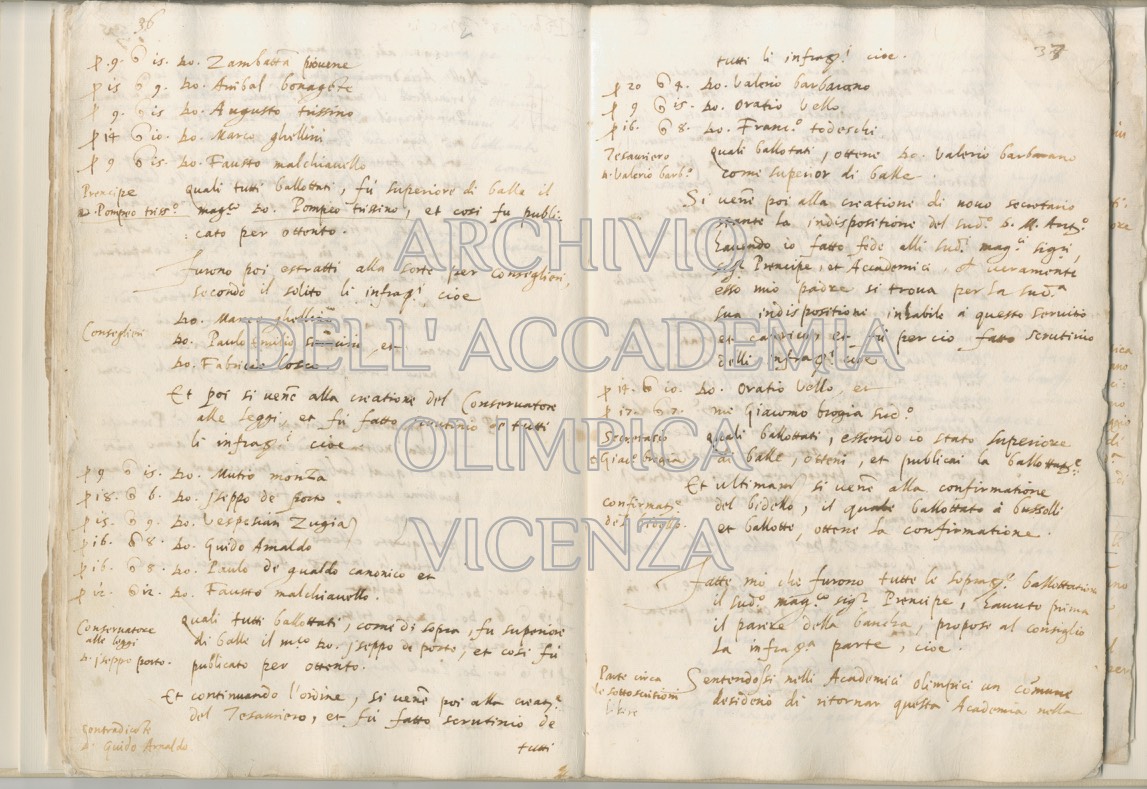 36
p 9. c is. Do. Zambatta piovene
p is c 9. Do. Anibal bonagẽte
p 9. c is. Do. Augusto trissino
p 14 c io. Do. Marco ghellini
p 9 c is. Do. Fausto malchiavello
Prencipe
D. Pompeo triss.º
quali tutti ballottati, fù superiore di balle il
mag.co Do. Pompeo trissino, et cosi fu publi-
cato per ottento.
furono poi estratti alla sorte per Consiglieri,
secondo il solito li infrag.i cioe
Conseglieri
Do. Marco ghellini
Do. Paulo Emilio et
Do. Fabricio Losco
Et poi si venẽ alla creatione del Conservatore
alle leggi, et fù fatto scrutinio de tutti
li infrag.i cioe
p 9 c is. Do. Mutio monza
p i8. c 6. Do. Iseppo de porto.
p is. c 9. Do. Vespesian Zugian
p i6. c 8. Do. Guido Arnaldo
p i6. c 8. Do. Paulo de gualdo canonico et
p i2. c i2. Do. Fausto malchiavello.
Conservatore
alle leggi
D. Iseppo porto.
quali tutti ballottati, come di sopra, fu superiore
di balle il m.co Do. Iseppo de porto, et cosi fù
publicato per ottento.
Et continuando l'ordine, si venẽ poi alla creat.e
del Tesauriero, et fù fatto scrutinio de
tutti
Contradicẽte
D. Guido Arnaldo
37
tutti li infrag.i cioe.
p 20 c 4. Do. Valerio barbarano
p 9 c is. Do. Oratio Vello
p i6. c 8. Do. Franc.º todeschi
Tesauriero
D. Valerio barb.º
quali ballottati, ottene Do. Valerio barbarano
come superior di balle.
Si venẽ poi alla creatione di novo secretario
stante la indispositione del sud.º S. M. Ant.º
havendo io fatto fede alli sud.i mag.ci sig.ri,
sig.r Prencipe, et Academici, ch' veramente
esso mio padre si trova per la sud.a
sua indispositione inhabile a questo servitio
et carico; et fù per cio fatto scrutinio
delli infrag.i cioe
p 14. c io. Do. Oratio Vello, et
p i7. c 7. me Giacomo brogia sud.º
Secretario
Giac.º brogia
quali ballottati, essendo io stato superiore
di balle, otteni, et publicai la ballottat.e
Et ultimam.te si venẽ alla confirmatione
del bidello, il quale ballottato à bussolli
et ballotte, ottene la confirmatione.
Confirmat.e
del
fatte mo che furono tutte le sopras.e ballottatione
il sud.º mag.co sig.r Prencipe, havuto prima
il parere della bancha, propose al consiglio
la infrag.a parte, cioe.
Parte circa
le sottoscrition
libere
Sentendosi nelli Academici olimpici un comune
desiderio di ritornar questa Academia nella
ARCHIVIO
DELL' ACCADEMIA
OLIMPICA
VICENZA